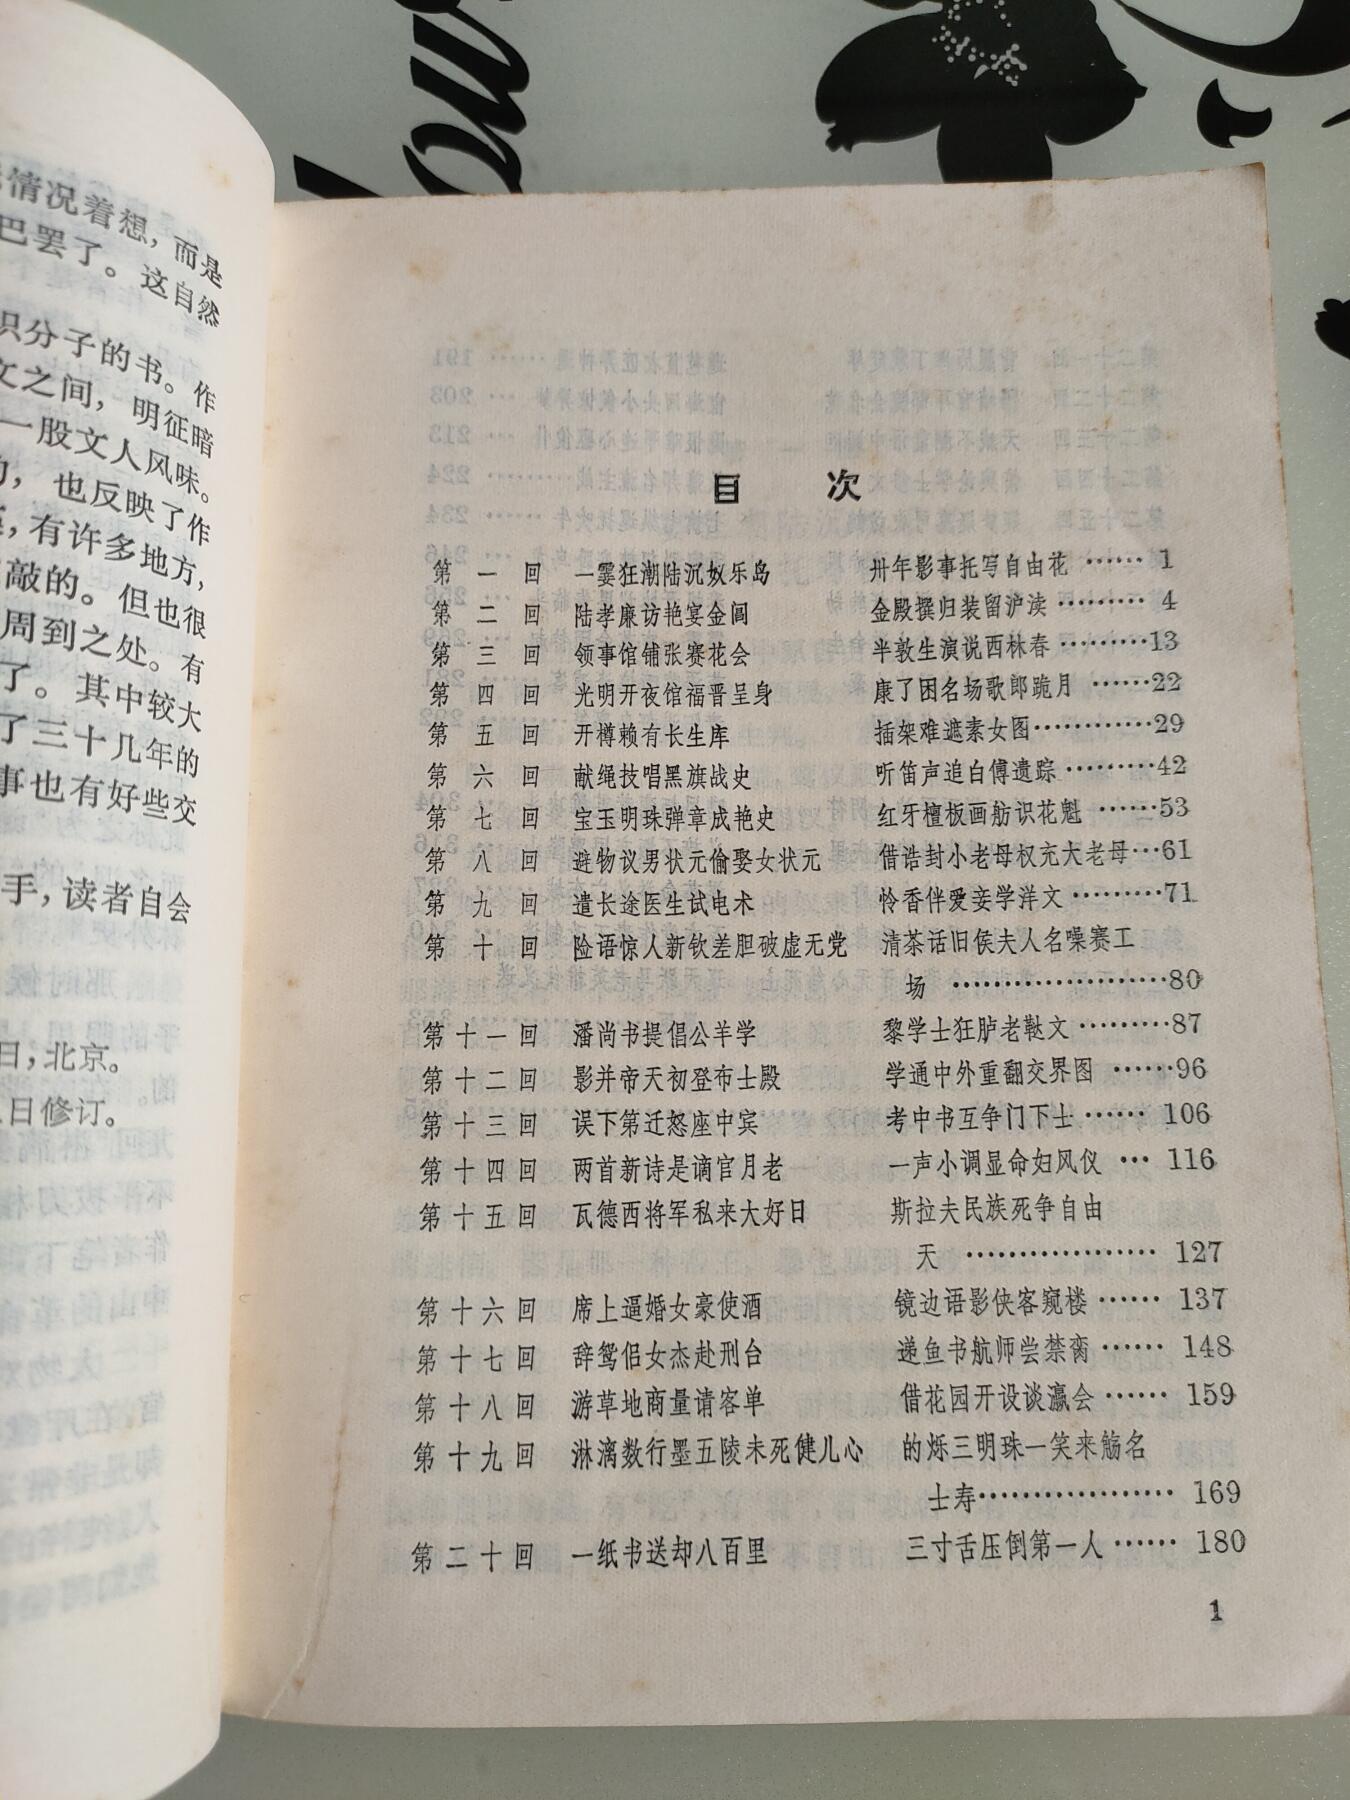 情况着想，而是
巴罢了。这自然
识分子的书。作
文之间，明征暗
一股文人风味。
，也反映了作
，有许多地方，
敲的。但也很
周到之处。有
了。其中较大
了三十几年的
事也有好些交
手，读者自会
日，北京。
日修订。
目 次
第一回 一霎狂潮陆沉奴乐岛 卅年影事托写自由花 …… 1
第二回 陆孝廉访艳宴金阊 金殿撰归装留沪渎 ……… 4
第三回 领事馆铺张赛花会 半敦生演说西林春 ……… 13
第四回 光明开夜馆福晋呈身 康了困名场歌郎跪月 …… 22
第五回 开樽赖有长生库 插架难遮素女图 ………… 29
第六回 献绳技唱黑旗战史 听笛声追白傅遗踪 ……… 42
第七回 宝玉明珠弹章成艳史 红牙檀板画舫识花魁 …… 53
第八回 避物议男状元偷娶女状元 借诰封小老母权充大老母 … 61
第九回 遣长途医生试电术 怜香伴爱妾学洋文 ……… 71
第十回 险语惊人新钦差胆破虚无党 清茶话旧侯夫人名噪赛工
场 ………………… 80
第十一回 潘尚书提倡公羊学 黎学士狂胪老鞑文 ……… 87
第十二回 影并帝天初登布士殿 学通中外重翻交界图 …… 96
第十三回 误下第迁怒座中宾 考中书互争门下士 …… 106
第十四回 两首新诗是谪官月老 一声小调显命妇风仪 … 116
第十五回 瓦德西将军私来大好日 斯拉夫民族死争自由
天 ……………… 127
第十六回 席上逼婚女豪使酒 镜边语影侠客窥楼 …… 137
第十七回 辞鸳侣女杰赴刑台 递鱼书航师尝禁脔 …… 148
第十八回 游草地商量请客单 借花园开设谈瀛会 …… 159
第十九回 淋漓数行墨五陵未死健儿心 的烁三明珠一笑来觞名
士寿 ……………… 169
第二十回 一纸书送却八百里 三寸舌压倒第一人 …… 180
1